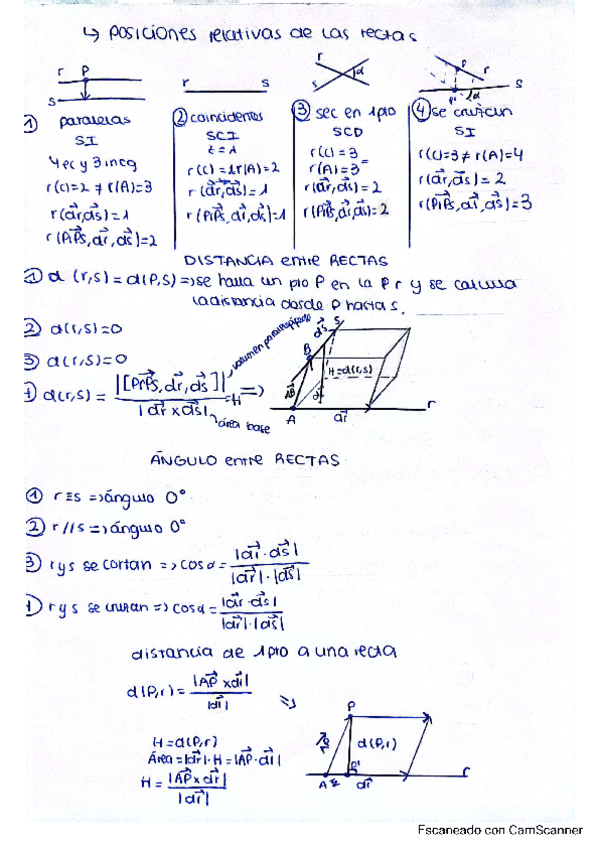 ↳ posiciones relativas de las rectas
r P
s
r s
r
s α
P r
s
P' α
① paralelas
SI
4 ec y 3 incg
r(C)=2 ≠ r(A)=3
r(dr,ds)=1
r(PrPs,dr,ds)=2
② coincidentes
SCI
t=1
r(C)=2r(A)=2
r(dr,ds)=1
r(PrPs,dr,ds)=1
③ sec en 1pto
SCD
r(C)=3
r(A)=3
r(dr,ds)=2
r(PrPs,dr,ds)=2
④ se cruzan
SI
r(C)=3 ≠ r(A)=4
r(dr,ds)=2
r(PrPs,dr,ds)=3
DISTANCIA entre RECTAS
① d(r,s)=d(P,s)=>se halla un pto P en la r y se calcula
la distancia desde P hasta s.
② d(r,s)=0
③ d(r,s)=0
d(r,s)= |[PrPs,dr,ds]| / |dr x ds| =H =>
volumen paralelepípedo
área base
ds s
B
AB
H=d(r,s)
A dr r
ÁNGULO entre RECTAS
① r≡s =>ángulo 0°
② r//s =>ángulo 0°
③ r y s se cortan => cosα= |dr·ds| / |dr|·|ds|
r y s se cruzan => cosα= |dr·ds| / |dr|·|ds|
distancia de 1pto a una recta
d(P,r)= |AP x dr| / |dr| =>
H=d(P,r)
Área=|dr|·H=|AP·dr|
H= |AP x dr| / |dr|
P
d(P,r)
P'
A dr r
Escaneado con CamScanner